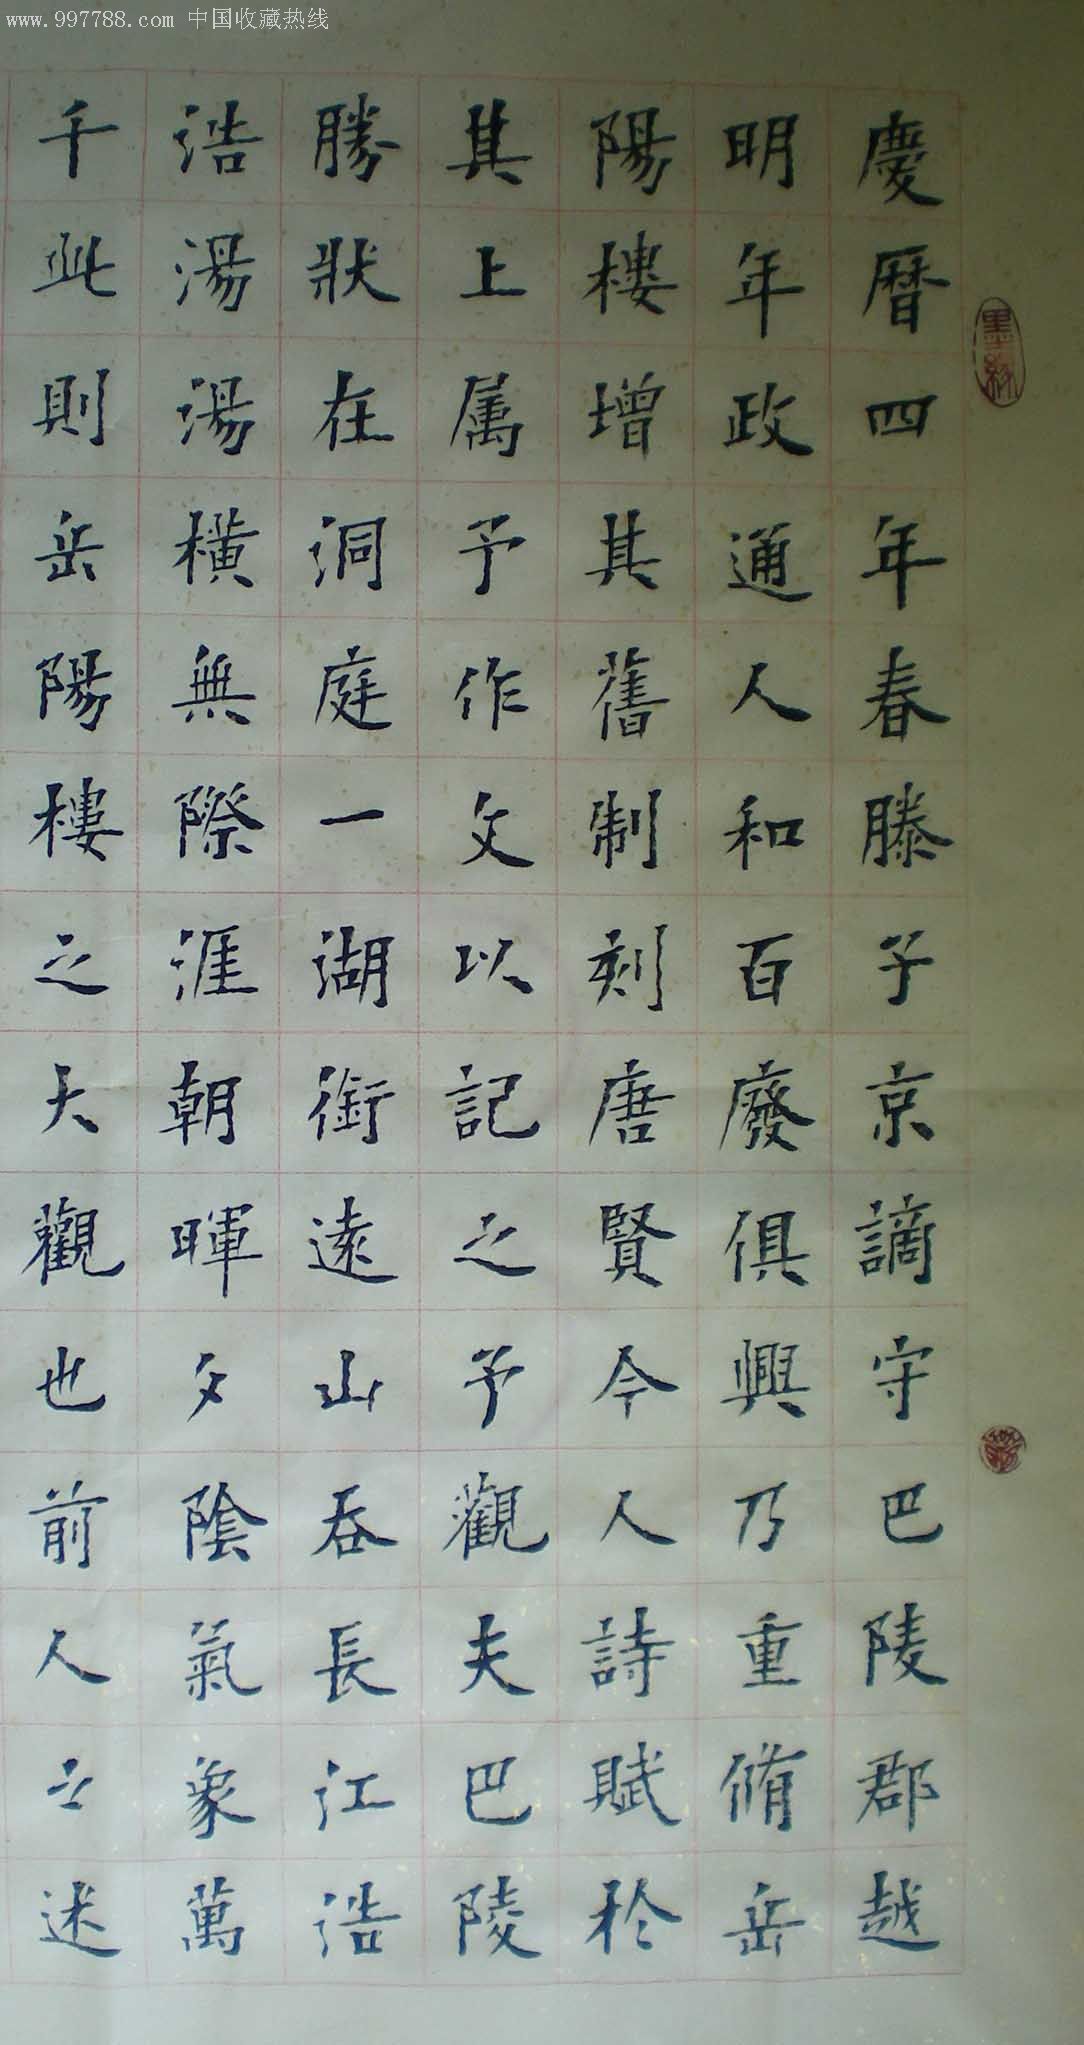 www.997788.com 中国收藏热线
慶曆四年春滕子京謫守巴陵郡越
明年政通人和百廢俱興乃重脩岳
陽樓增其舊制刻唐賢今人詩賦於
其上属予作文以記之予觀夫巴陵
勝狀在洞庭一湖銜遠山吞長江浩
浩湯湯橫無際涯朝暉夕陰氣象萬
千此則岳陽樓之大觀也前人之述